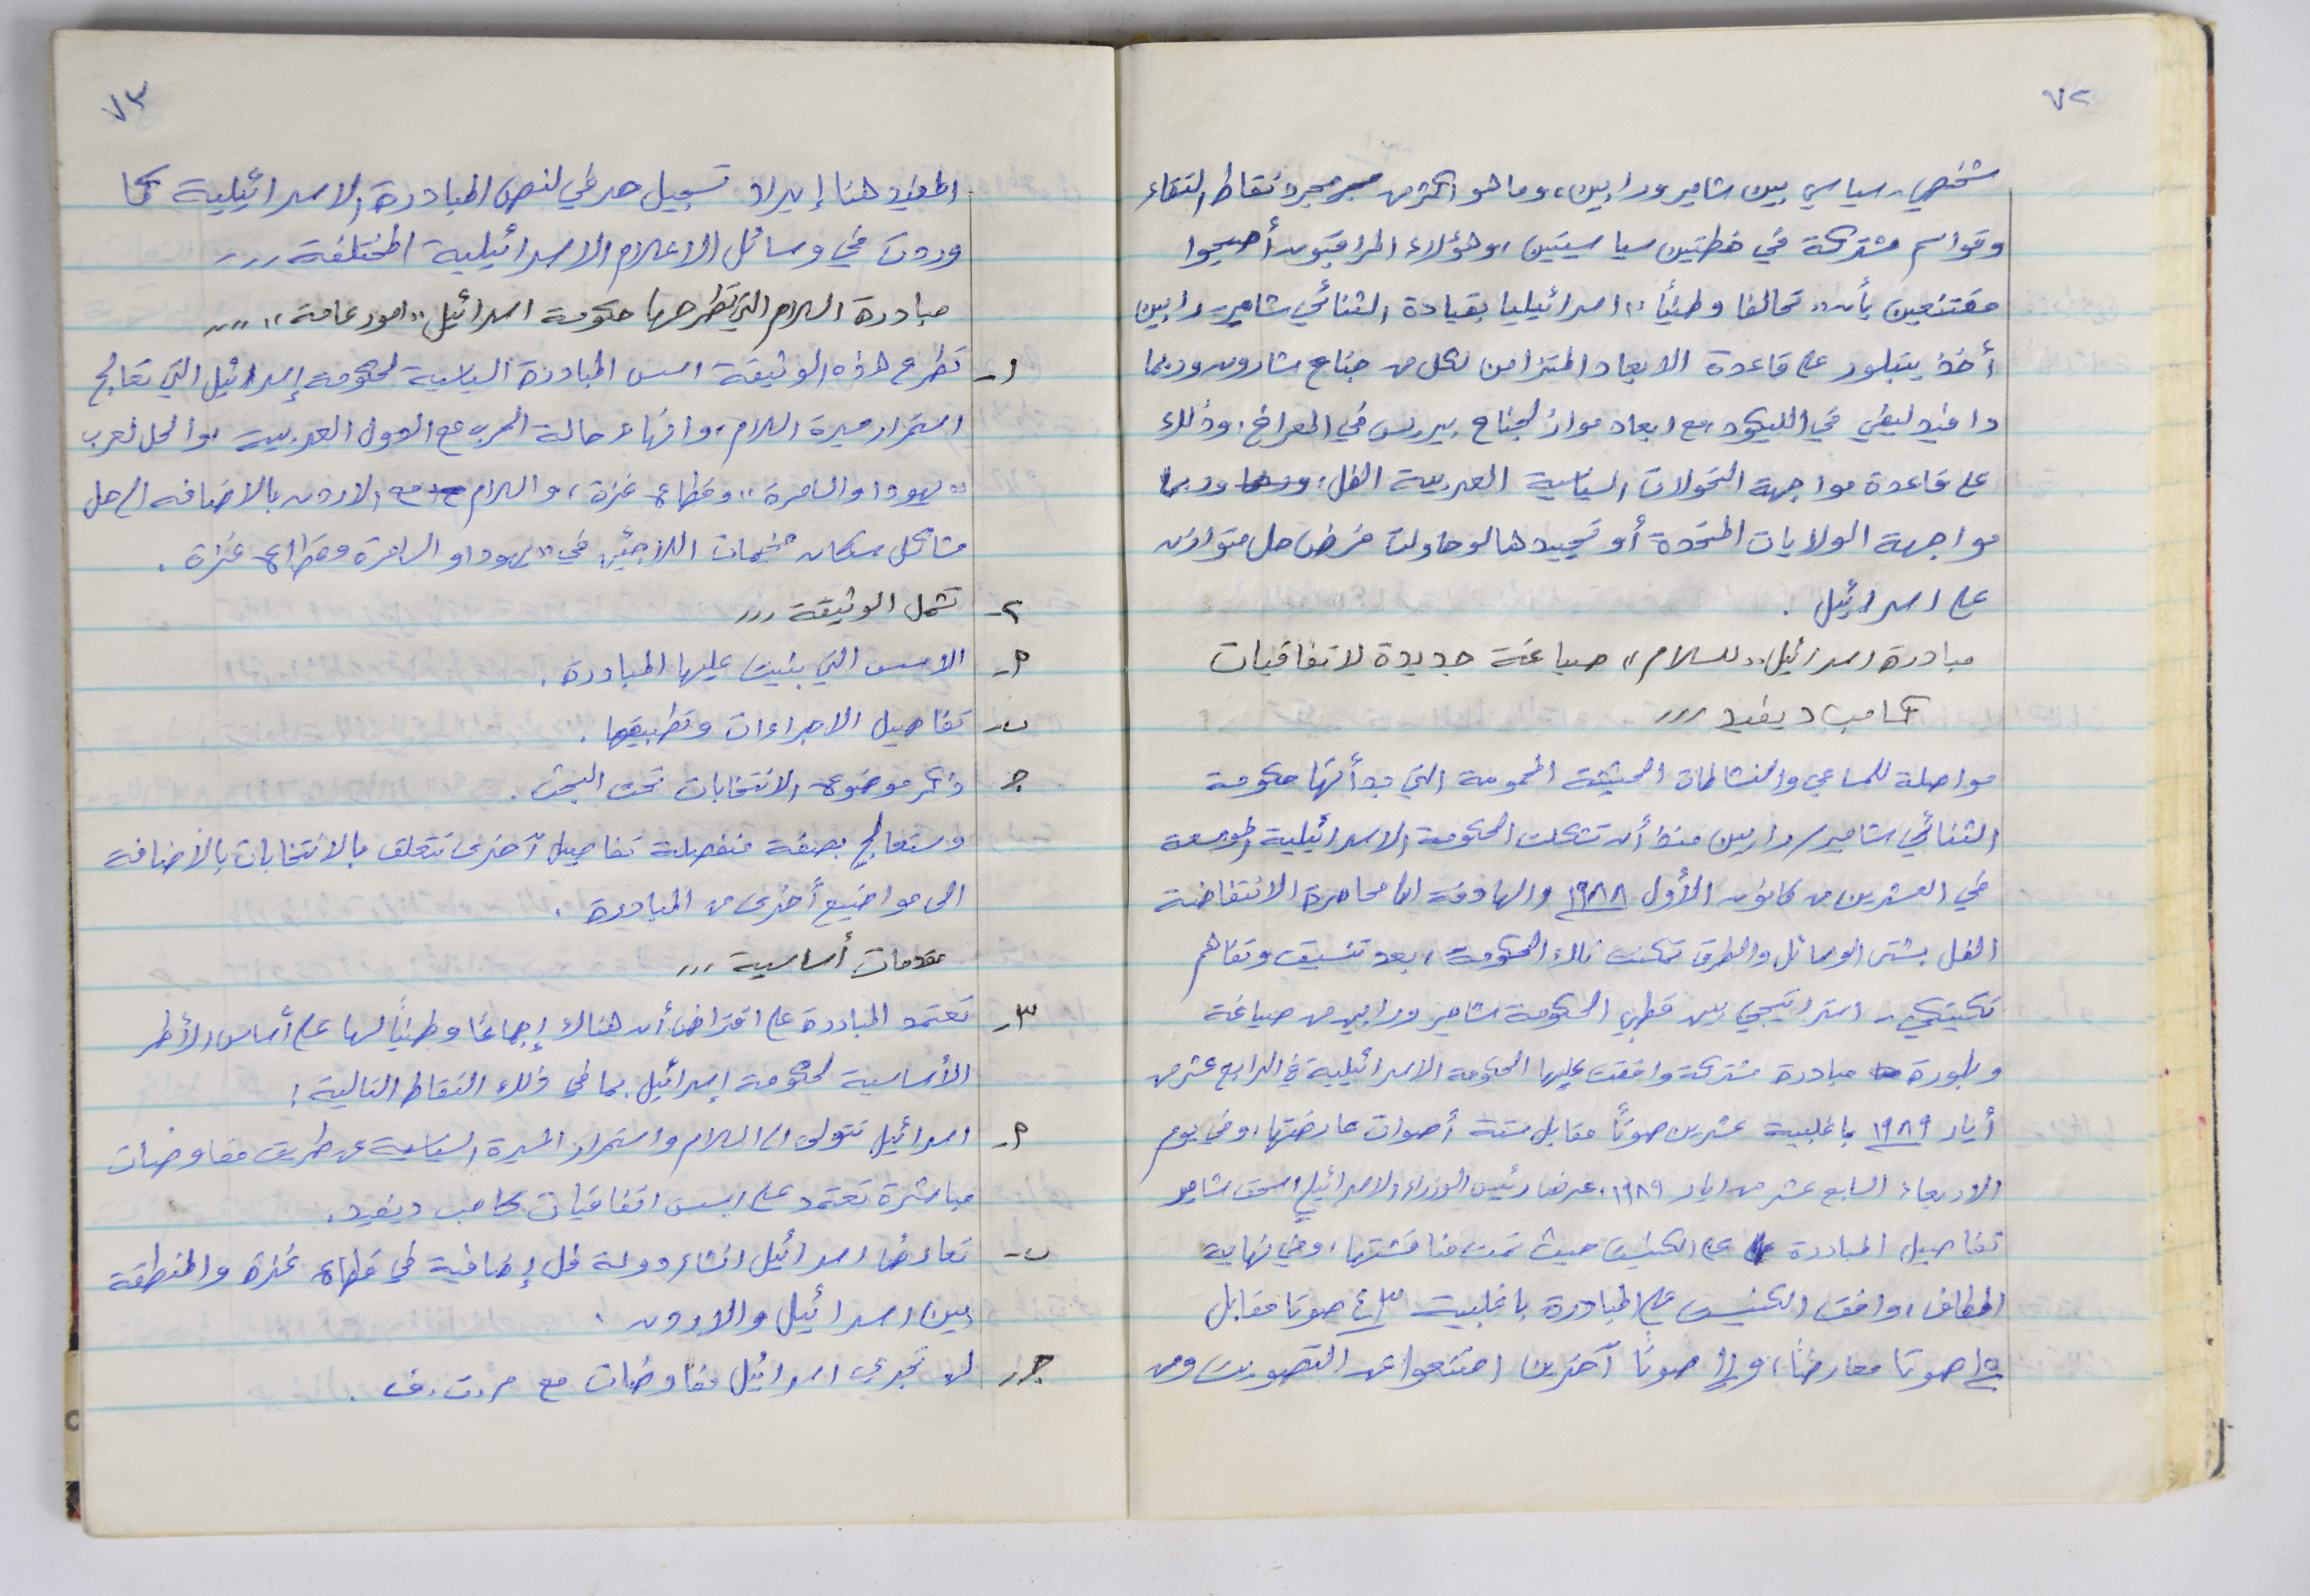 ٧٢
شخصي، سياسي بين شامير ورابين، وما هو اكثر من مجرد نقاط التقاء
وقواسم مشتركة في خطتين سياسيتين، وهؤلاء المراقبون أصبحوا
مقتنعين بأن "تحالفا وطنيًا" اسرائيليا بقيادة الثنائي شامير رابين
أخذ يتبلور على قاعدة الابعاد المتزامن لكل من جناح شارون وربما
دافيد ليفي في الليكود، مع ابعاد مواز لجناح بيرس في المعراخ، وذلك
على قاعدة مواجهة التحولات السياسية العربية الفل، وربما
مواجهة الولايات المتحدة أو تحييدها لو حاولت فرض حل متوازن
على اسرائيل .
مبادرة اسرائيل "للسلام" صياغة جديدة لاتفاقيات
كامب ديفيد ,,,
مواصلة للمساعي والنشاطات الحثيثة المحمومة التي بدأتها حكومة
الثنائي شامير/رابين منذ أن تشكلت الحكومة الاسرائيلية الموسعة
في العشرين من كانون الأول ١٩٨٨ والهادفة الى محاصرة الانتفاضة
الفل بشتى الوسائل والطرق تمكنت تلك الحكومة، بعد تنسيق وتفاهم
تكتيكي - استراتيجي بين قطبي الحكومة شامير ورابين من صياغة
وبلورة مبادرة مشتركة وافقت عليها الحكومة الاسرائيلية في الرابع عشر من
أيار ١٩٨٩ باغلبية عشرين صوتًا مقابل ستة أصوات عارضتها، وفي يوم
الاربعاء السابع عشر من ايار ١٩٨٩، عرض رئيس الوزراء الاسرائيلي اسحق شامير
تفاصيل المبادرة على الكنيست حيث تمت مناقشتها، وفي نهاية
المطاف، وافق الكنيست على المبادرة باغلبية ٤٣ صوتا مقابل
١٥ صوتا معارضًا، و صوتًا آخرين امتنعوا عن التصويت ومن
٧٣
المفيد هنا إيراد تسجيل حرفي لنص المبادرة الاسرائيلية كما
وردت في وسائل الاعلام الاسرائيلية المختلفة ,,,
مبادرة السلام التي تطرحها حكومة اسرائيل "امور عامة" ,,,,
١- تطرح هذه الوثيقة اسس المبادرة السياسية لحكومة إسرائيل التي تعالج
استمرار مسيرة السلام، وانهاء حالة الحرب مع الدول العربية، والحل لعرب
"يهودا والسامرة" وقطاع غزة، والسلام مع الاردن بالاضافه الى حل
مشاكل سكان مخيمات اللاجئين في "يهودا والسامرة وقطاع غزة .
٢- تشمل الوثيقة ,,,
أ- الاسس التي بنيت عليها المبادرة .
ب- تفاصيل الاجراءات وتطبيقها .
ج- ذكر موضوع الانتخابات تحت البحث .
وستعالج بصفة منفصلة تفاصيل أخرى تتعلق بالانتخابات بالاضافة
الى مواضيع أخرى من المبادرة .
مقدمات أساسية ,,,
٣- تعتمد المبادرة على افتراض أن هناك إجماعًا وطنيًا لها على أساس الأطر
الأساسية لحكومة إسرائيل بما في ذلك النقاط التالية :
أ- اسرائيل تتوق الى السلام واستمرار المسيرة السياسية عن طريق مفاوضات
مباشرة تعتمد على اسس اتفاقيات كامب ديفيد .
ب- تعارض اسرائيل انشاء دولة فل إضافية في قطاع غزة والمنطقة
بين اسرائيل والاردن .
ج- لن تجري اسرائيل مفاوضات مع م.ت.ف .